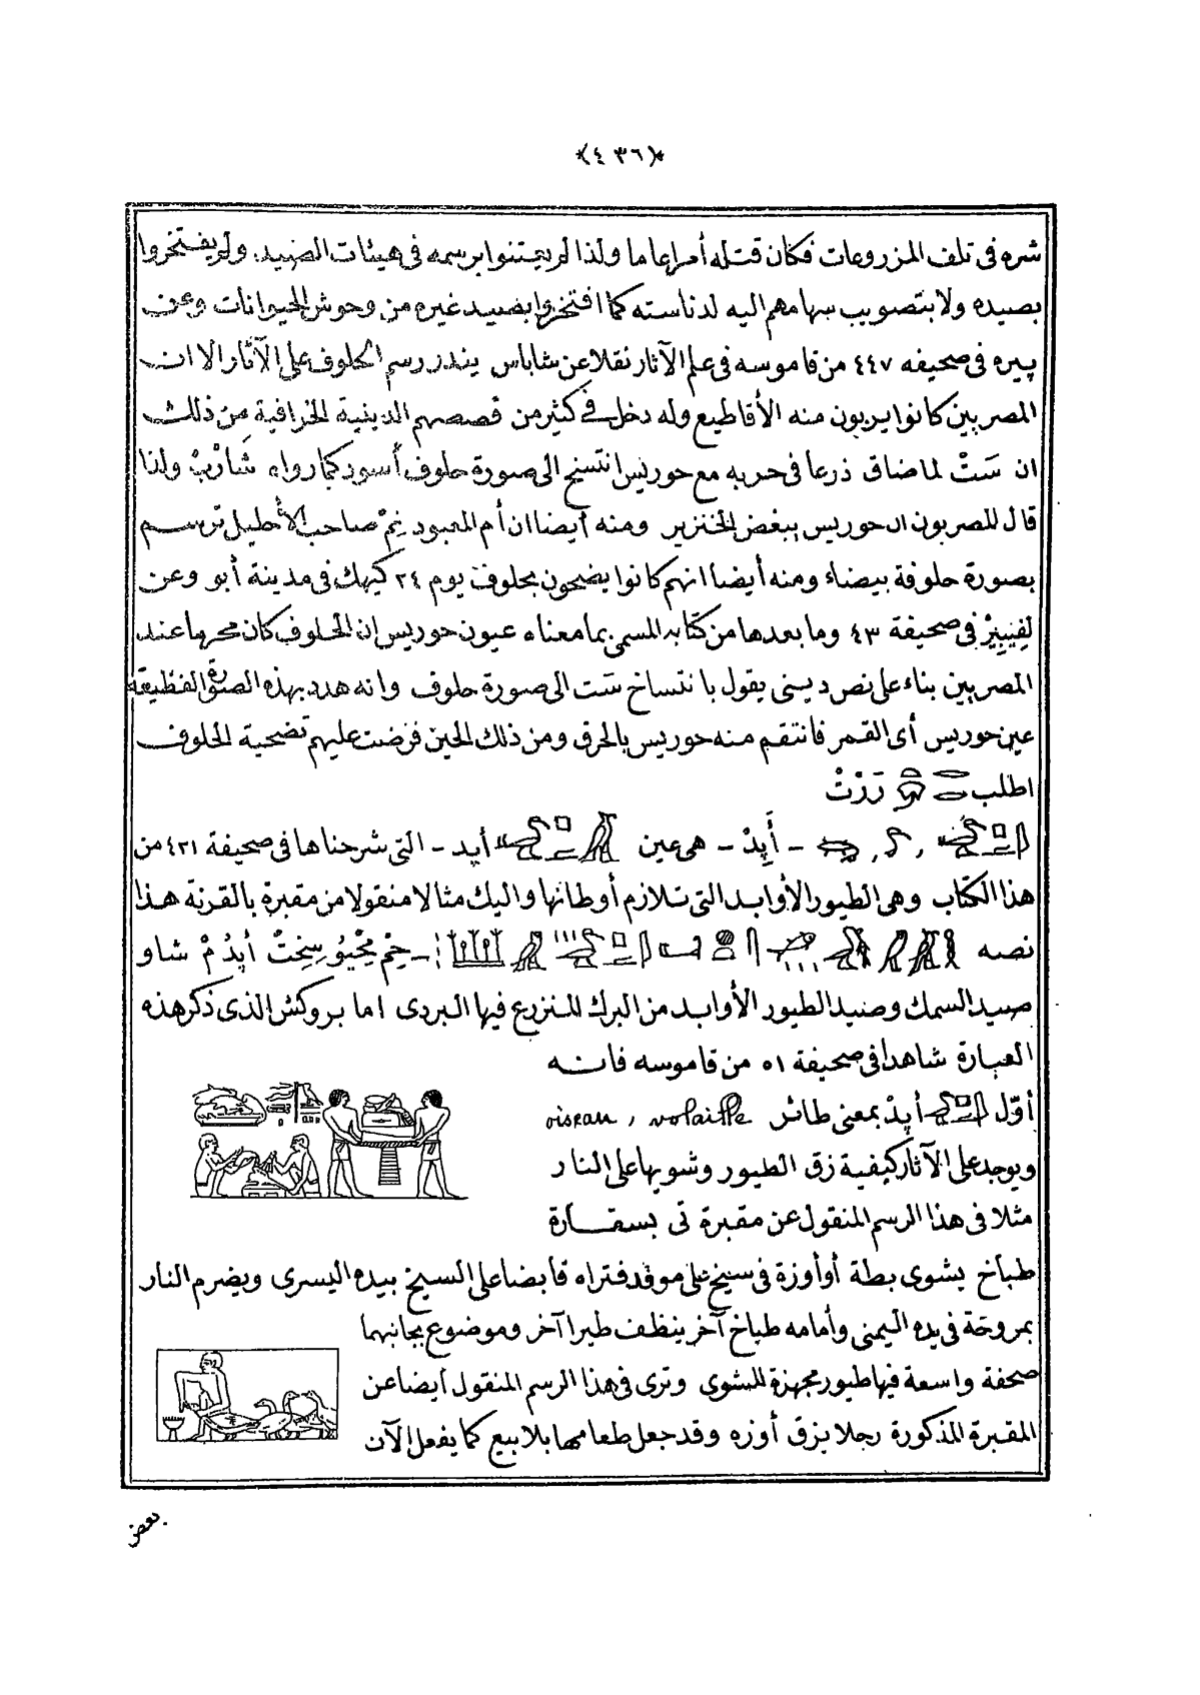 ﴿٤٣٦﴾
شره فى تلف المزروعات فكان قتله أمرا عاما ولذا لم يعتنوا برسمه فى هيئات الصيد ولم يفتخروا
بصيده ولا بتصويب سهامهم اليه لدناسته كما افتخروا بصيد غيره من وحوش الحيوانات وعن
پيره فى صحيفه ٤٤٧ من قاموسه فى علم الآثار نقلا عن شاباس يندر رسم الحلوف على الآثار الا ان
المصريين كانوا يربون منه الأقاطيع وله دخل فى كثير من قصصهم الدينية الخرافية من ذلك
ان سَتْ لما ضاق ذرعا فى حربه مع حوريس انتسخ الى صورة حلوف أسود كما رواه شَارْبْ ولذا
قال المصريون ان حوريس يبغض الخنزير ومنه أيضا ان أم المعبود نِمْ صاحب الأحليل ترسم
بصورة حلوفة بيضاء ومنه أيضا انهم كانوا يضحون بحلوف يوم ٢٤ كيهك فى مدينة أبو وعن
لِفِيبِيرْ فى صحيفة ٤٣ وما بعدها من كتابه المسمى بما معناه عيون حوريس إن الحلوف كان محرما عند
المصريين بناء على نص دينى يقول بانتساخ ست الى صورة حلوف وانه هدد بهذه الصورة الفظيعة
عين حوريس أى القمر فانتقم منه حوريس بالحرق ومن ذلك الحين فرضت عليهم تضحية الحلوف
اطلب رَرْتْ
– أَپِدْ – هى عين أپد – التى شرحناها فى صحيفة ٤٣١ من
هذا الكتاب وهى الطيور الأوابد التى تلازم أوطانها واليك مثالا منقولا من مقبرة بالقرنة هذا
نصه – سِخِتْ أپدُ مْ شاو
صيد السمك وصيد الطيور الأوابد من البرك المنزرع فيها البردى اما بروكش الذى ذكر هذه
العبارة شاهدا فى صحيفة ٥١ من قاموسه فانه
أوّل أپد بمعنى طائر oiseau, volaille
ويوجد على الآثار كيفية زق الطيور وشويها على النار
مثلا فى هذا الرسم المنقول عن مقبرة تى بسقارة
طباخ يشوى بطة أو أوزة فى سيخ على موقد فتراه قابضا على السيخ بيده اليسرى ويضرم النار
بمروحة فى يده اليمنى وأمامه طباخ آخر ينظف طيرا آخر وموضوع بجانبهما
صحفة واسعة فيها طيور مجهزة للشوى وترى فى هذا الرسم المنقول أيضا عن
المقبرة المذكورة رجلا يزق أوزه وقد جعل طعامها بلابيع كما يفعل الآن
بعض